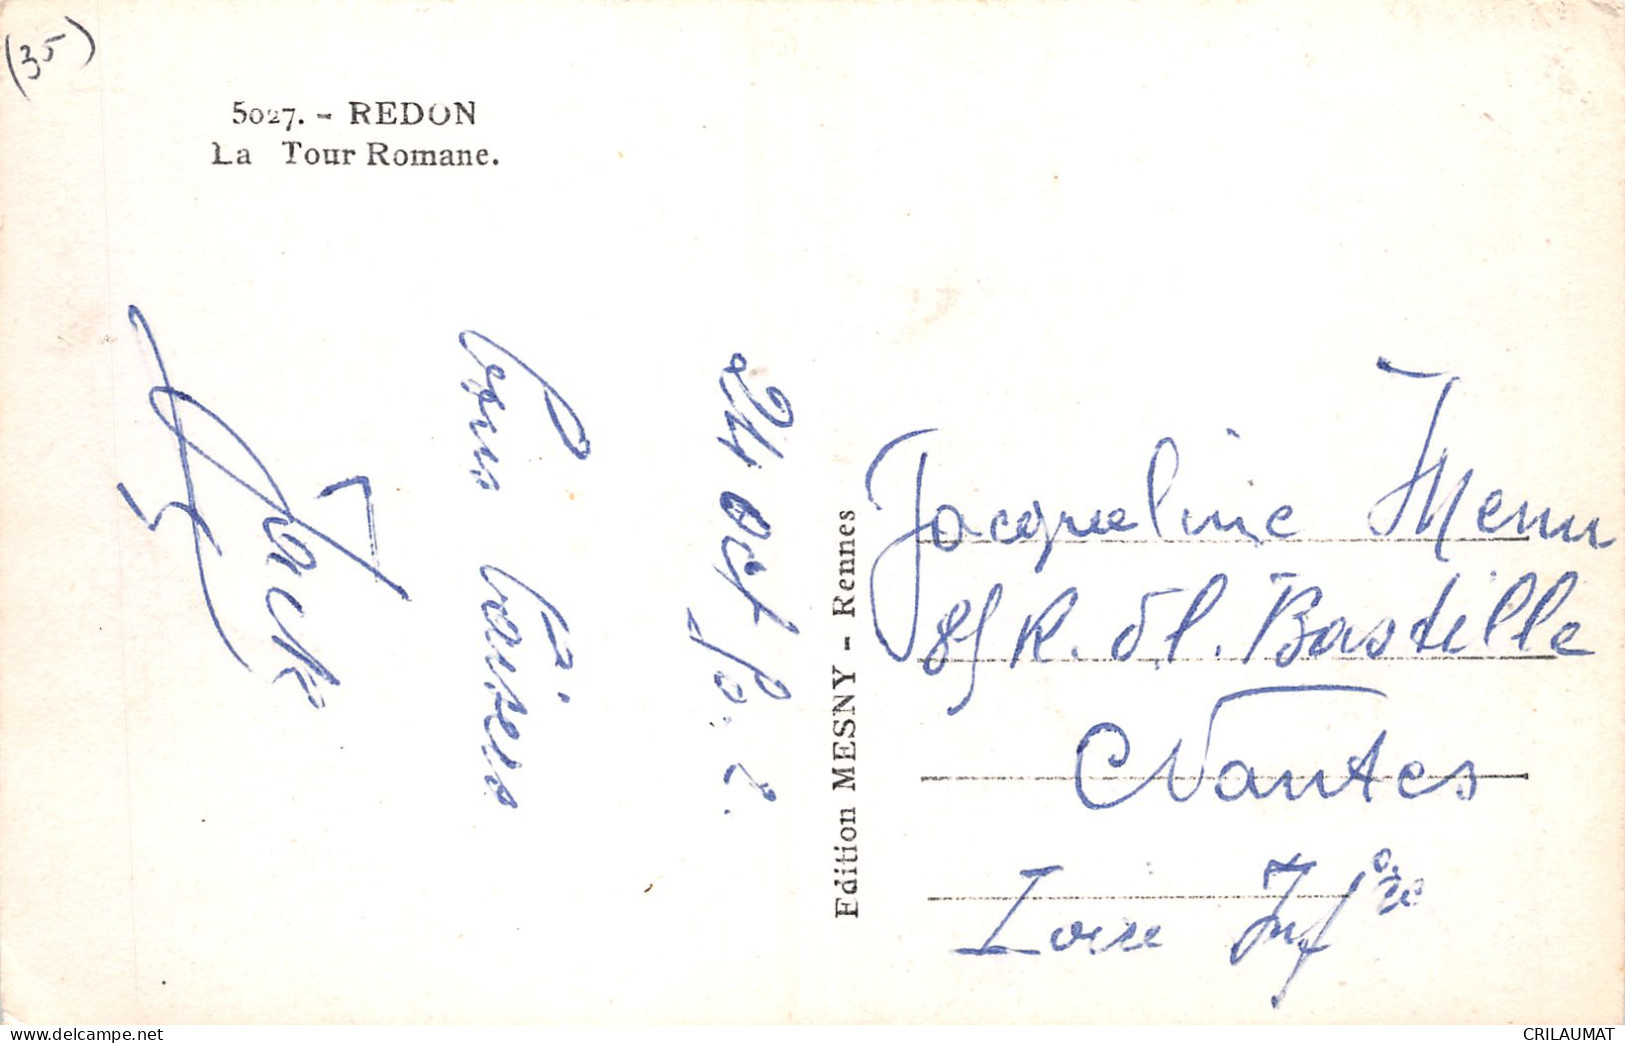 (35)
5027. - REDON
La Tour Romane.
24 oct
bons baisers
Jack
Edition MESNY - Rennes
Jacqueline Menu
R. de l. Bastille
Nantes
Loire Infre
www.delcampe.net
CRILAUMAT